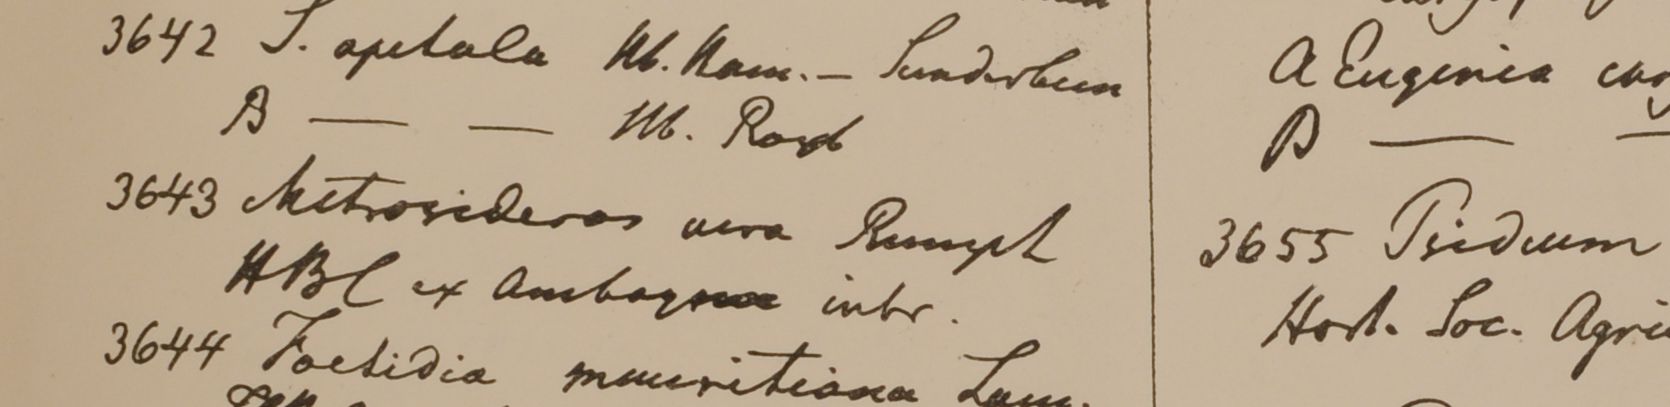 3642 S. apetala Hb. Ham. — Sunderbun
B — — Hb. Roxb
3643 Metrosideros vera Rumph
HBC ex Amboyna intr.
3644 Foetidia mauritiana Lam.
A Eugenia
B — —
3655 Psidium
Hort. Soc. Agri